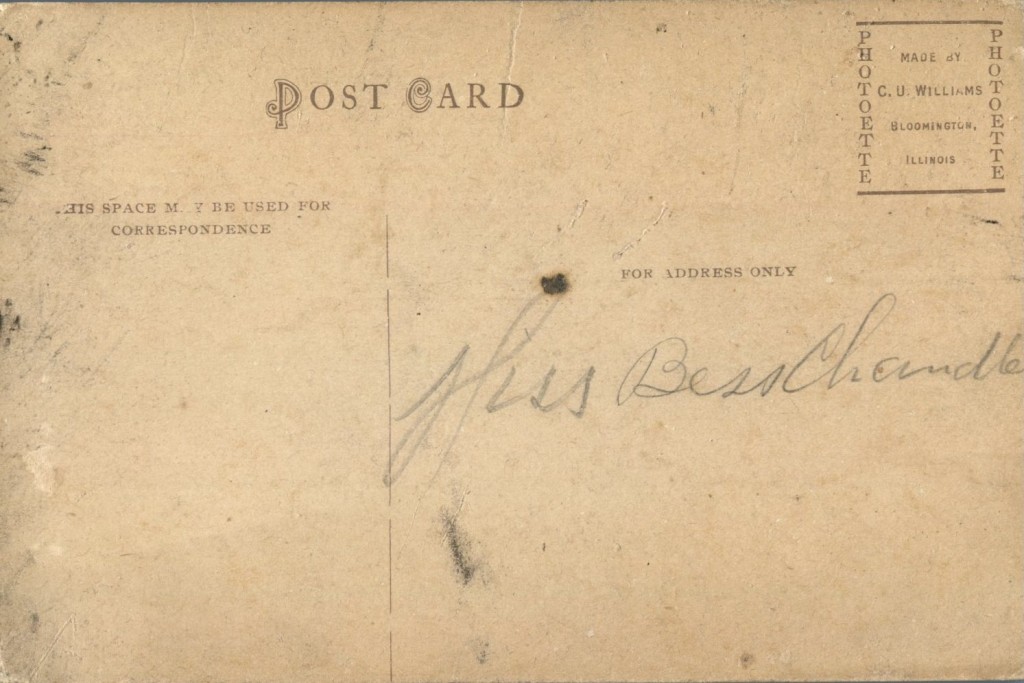 POST CARD
PHOTOETTE
MADE BY
C. U. WILLIAMS
BLOOMINGTON,
ILLINOIS
PHOTOETTE
HIS SPACE M Y BE USED FOR
CORRESPONDENCE
FOR ADDRESS ONLY
Miss Bess Chandle